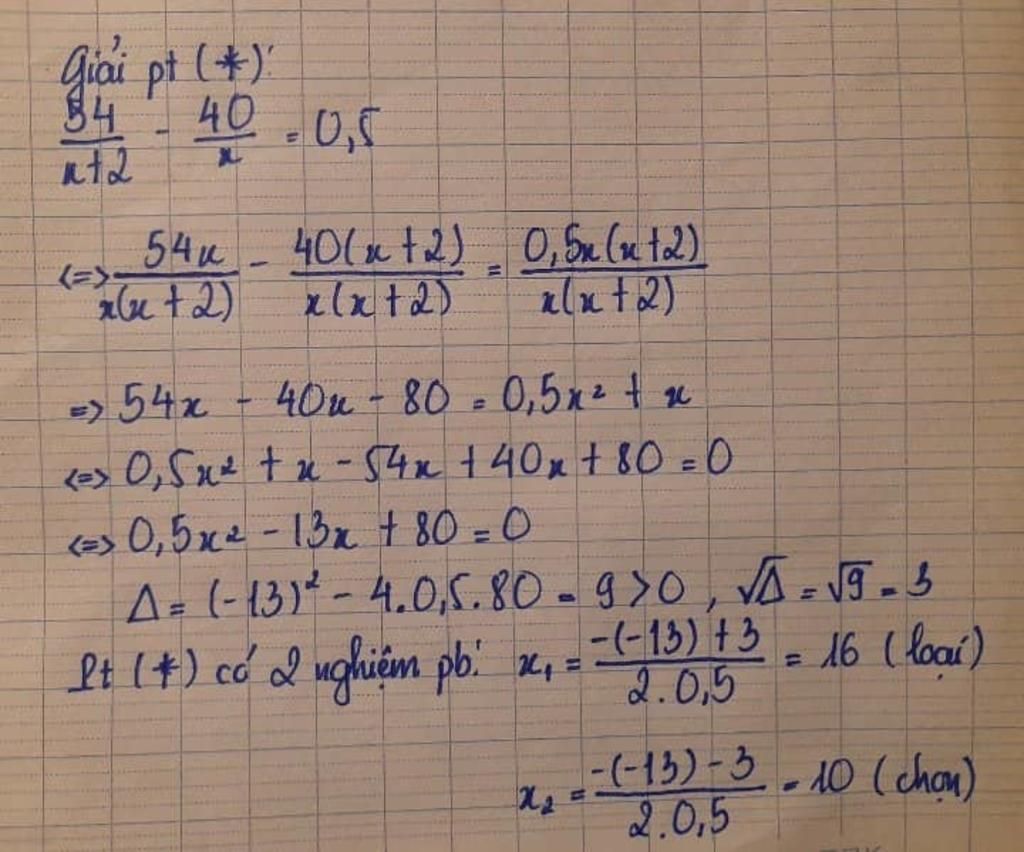 Giải pt (*):
54/(x+2) - 40/x = 0,5
<=> 54x/(x(x+2)) - 40(x+2)/(x(x+2)) = 0,5x(x+2)/(x(x+2))
=> 54x - 40x - 80 = 0,5x² + x
<=> 0,5x² + x - 54x + 40x + 80 = 0
<=> 0,5x² - 13x + 80 = 0
Δ = (-13)² - 4.0,5.80 = 9 > 0, √Δ = √9 = 3
Pt (*) có 2 nghiệm pb: x₁ = (-(-13) + 3)/(2.0,5) = 16 (loại)
x₂ = (-(-13) - 3)/(2.0,5) = 10 (chọn)